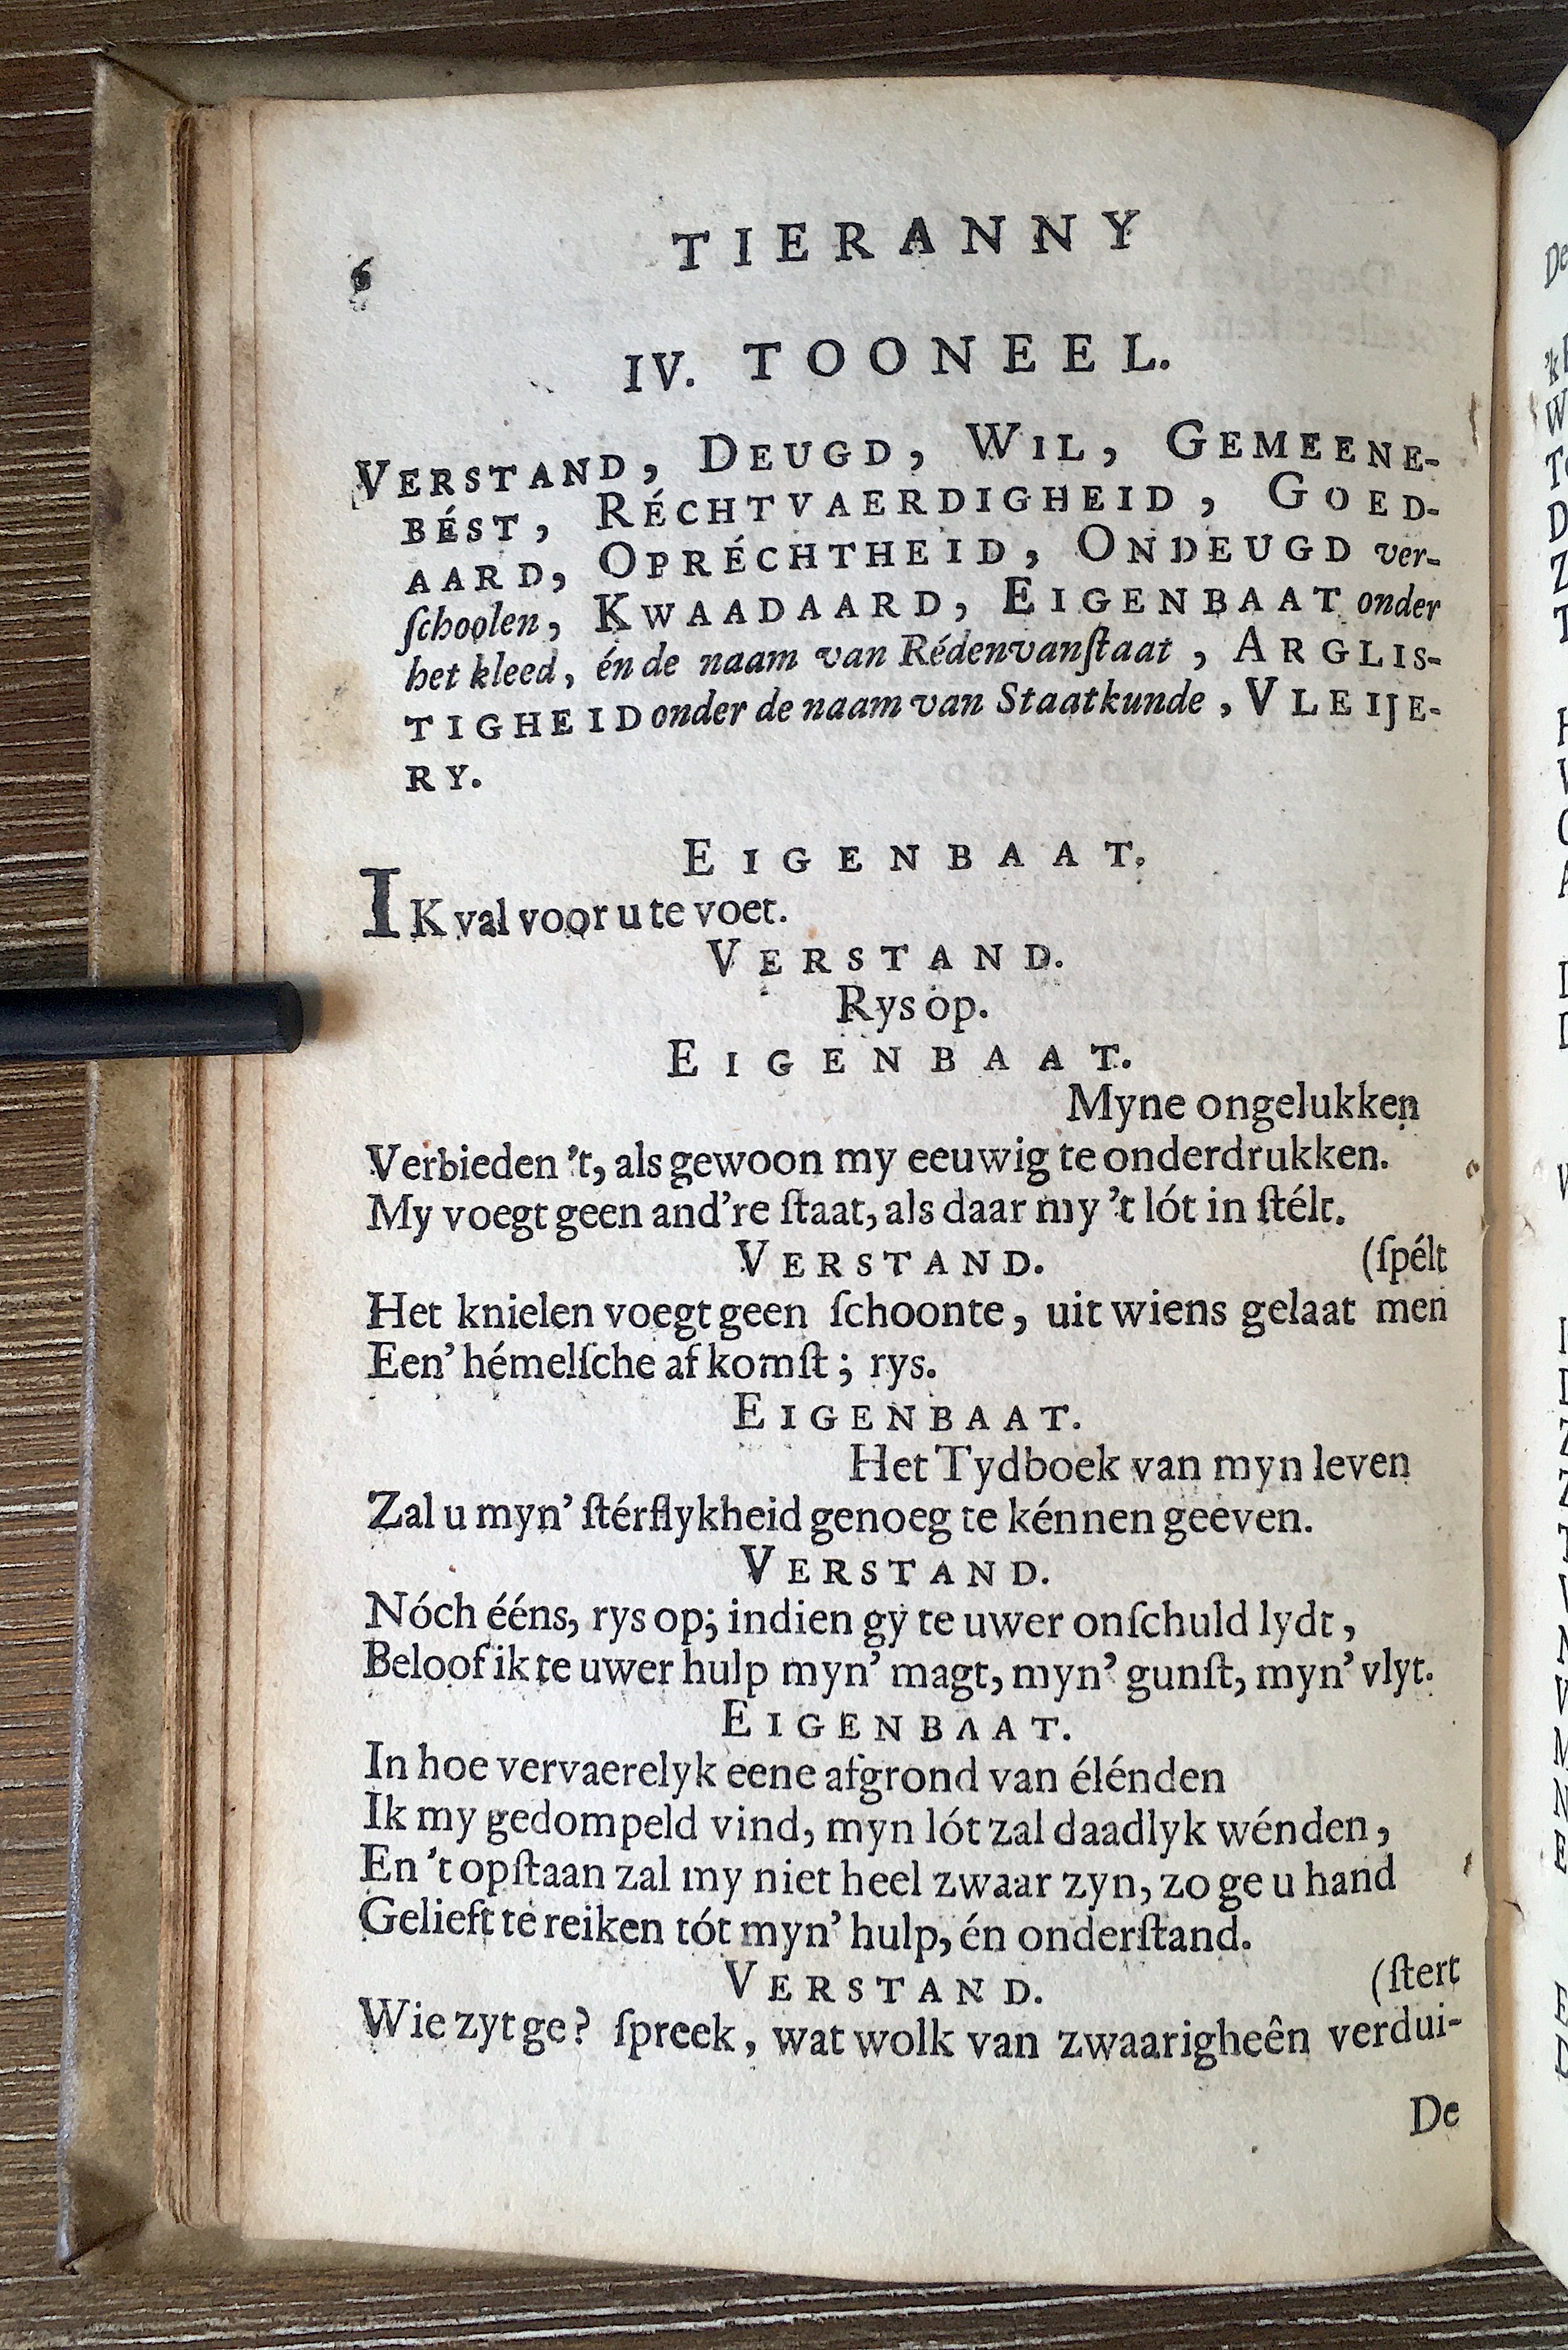 6 TIERANNY
IV. TOONEEL.
VERSTAND, DEUGD, WIL, GEMEENE-
BÉST, RÉCHTVAERDIGHEID, GOED-
AARD, OPRÉCHTHEID, ONDEUGD ver-
ſchoolen, KWAADAARD, EIGENBAAT onder
het kleed, én de naam van Rédenvanſtaat, ARGLIS-
TIGHEID onder de naam van Staatkunde, VLEIJE-
RY.
EIGENBAAT.
IK val voor u te voet.
VERSTAND.
Rys op.
EIGENBAAT.
Myne ongelukken
Verbieden 't, als gewoon my eeuwig te onderdrukken.
My voegt geen and're ſtaat, als daar my 't lót in ſtélt.
VERSTAND. (ſpélt
Het knielen voegt geen ſchoonte, uit wiens gelaat men
Een' hémelſche afkomſt; rys.
EIGENBAAT.
Het Tydboek van myn leven
Zal u myn' ſtérflykheid genoeg te kénnen geeven.
VERSTAND.
Nóch ééns, rys op; indien gy te uwer onſchuld lydt,
Beloof ik te uwer hulp myn' magt, myn' gunſt, myn' vlyt.
EIGENBAAT.
In hoe vervaerelyk eene afgrond van élénden
Ik my gedompeld vind, myn lót zal daadlyk wénden,
En 't opſtaan zal my niet heel zwaar zyn, zo ge u hand
Gelieft te reiken tót myn' hulp, én onderſtand.
VERSTAND. (ſtert
Wie zyt ge? ſpreek, wat wolk van zwaarigheên verdui-
De